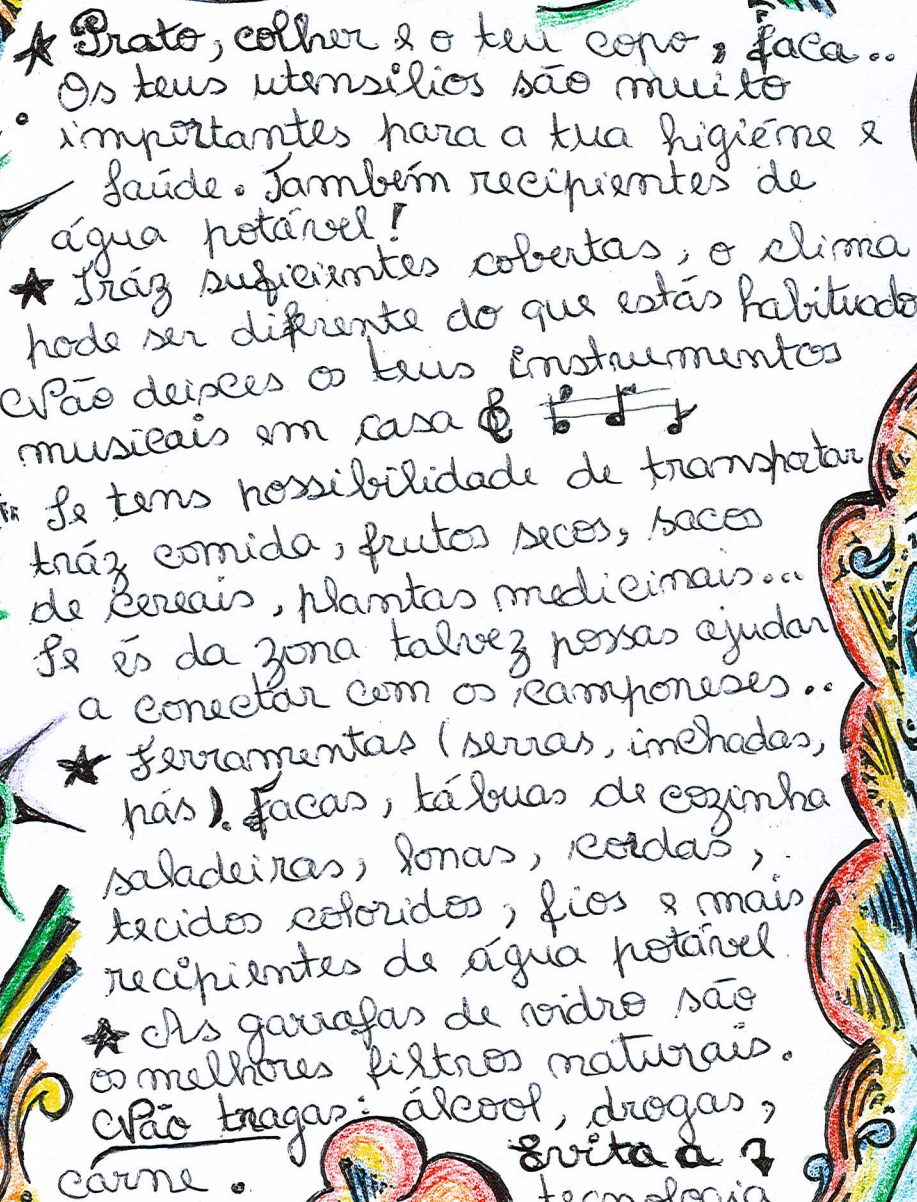 ★ Prato, colher e o teu copo, faca..
Os teus utensílios são muito
importantes para a tua higiéne e
saúde. Também recipientes de
água potável!
★ Tráz suficientes cobertas, o clima
pode ser diferente do que estás habituado
Não deixes os teus instrumentos
musicais em casa
Se tens possibilidade de transportar
tráz comida, frutos secos, sacos
de cereais, plantas medicinais...
Se és da zona talvez possas ajudar
a conectar com os camponeses..
★ Ferramentas (serras, inchadas,
pás). Facas, tábuas de cozinha
saladeiras, lonas, cordas,
tecidos coloridos, fios e mais
recipientes de água potável
★ As garrafas de vidro são
os melhores filtros naturais.
Não tragas: álcool, drogas,
carne. Evita a
tecnologia